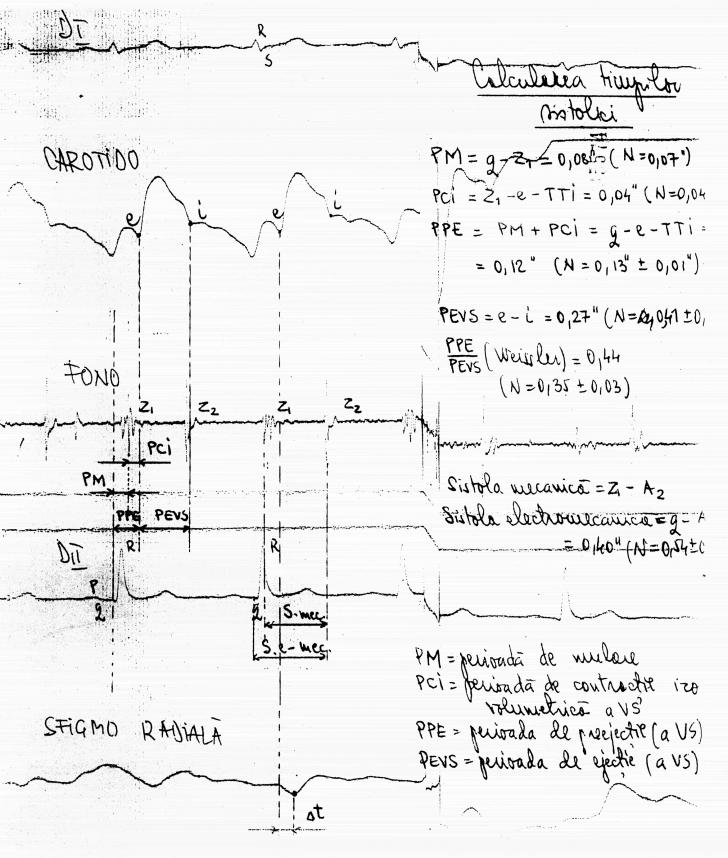 DI
R
S
Calcularea timpilor
sistolei
CAROTIDO
e
i
e
i
PM = q - Z₁ = 0,08" (N=0,07")
PCi = Z₁ - e - TTi = 0,04" (N=0,04
PPE = PM + PCi = q - e - TTi =
= 0,12" (N = 0,13" ± 0,01")
PEVS = e - i = 0,27" (N=
PPE
PEVS (Weissler) = 0,44
(N=0,35 ± 0,03)
FONO
Z₁
Z₂
Z₁
Z₂
PCi
PM
PPE
PEVS
Sistola mecanică = Z₁ - A₂
Sistola electromecanică = q - A
= 0,40" (N=0,54±0
DII
R
R
P
q
q
S. mec
S. e-mec
PM = perioadă de mulare
PCi = perioadă de contracție izo
volumetrică a VS
PPE = perioada de preejecție (a VS)
PEVS = perioada de ejecție (a VS)
SFIGMO RADIALĂ
Δt